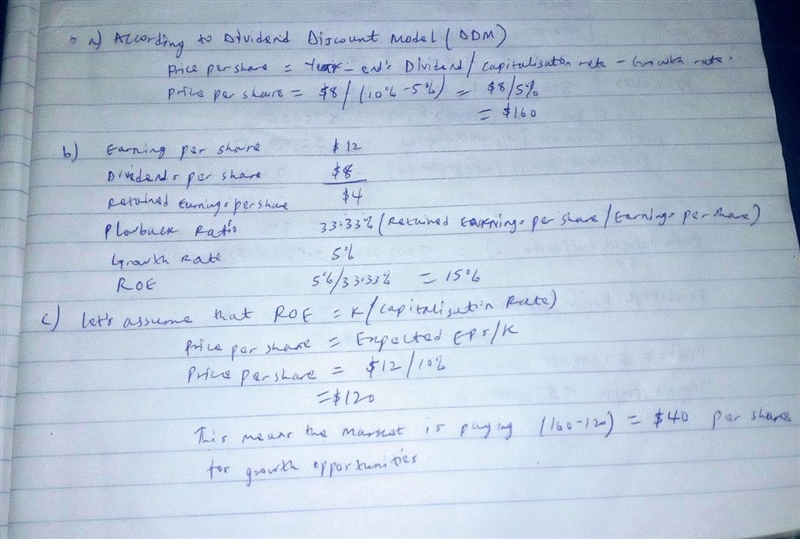 a) According to Dividend Discount Model (DDM)
Price per share = Year-end's Dividend / Capitalisation rate - Growth rate.
Price per share = $8 / (10% - 5%) = $8/5%
= $160
b) Earning per share $12
Dividends per share $8
Retained Earnings per share $4
Plowback Ratio 33.33% (Retained Earnings per share / Earnings per share)
Growth Rate 5%
ROE 5%/33.33% = 15%
c) Let's assume that ROE = K (Capitalisation Rate)
Price per share = Expected EPS/K
Price per share = $12/10%
= $120
This means the Market is paying (160-120) = $40 per share
for growth opportunities